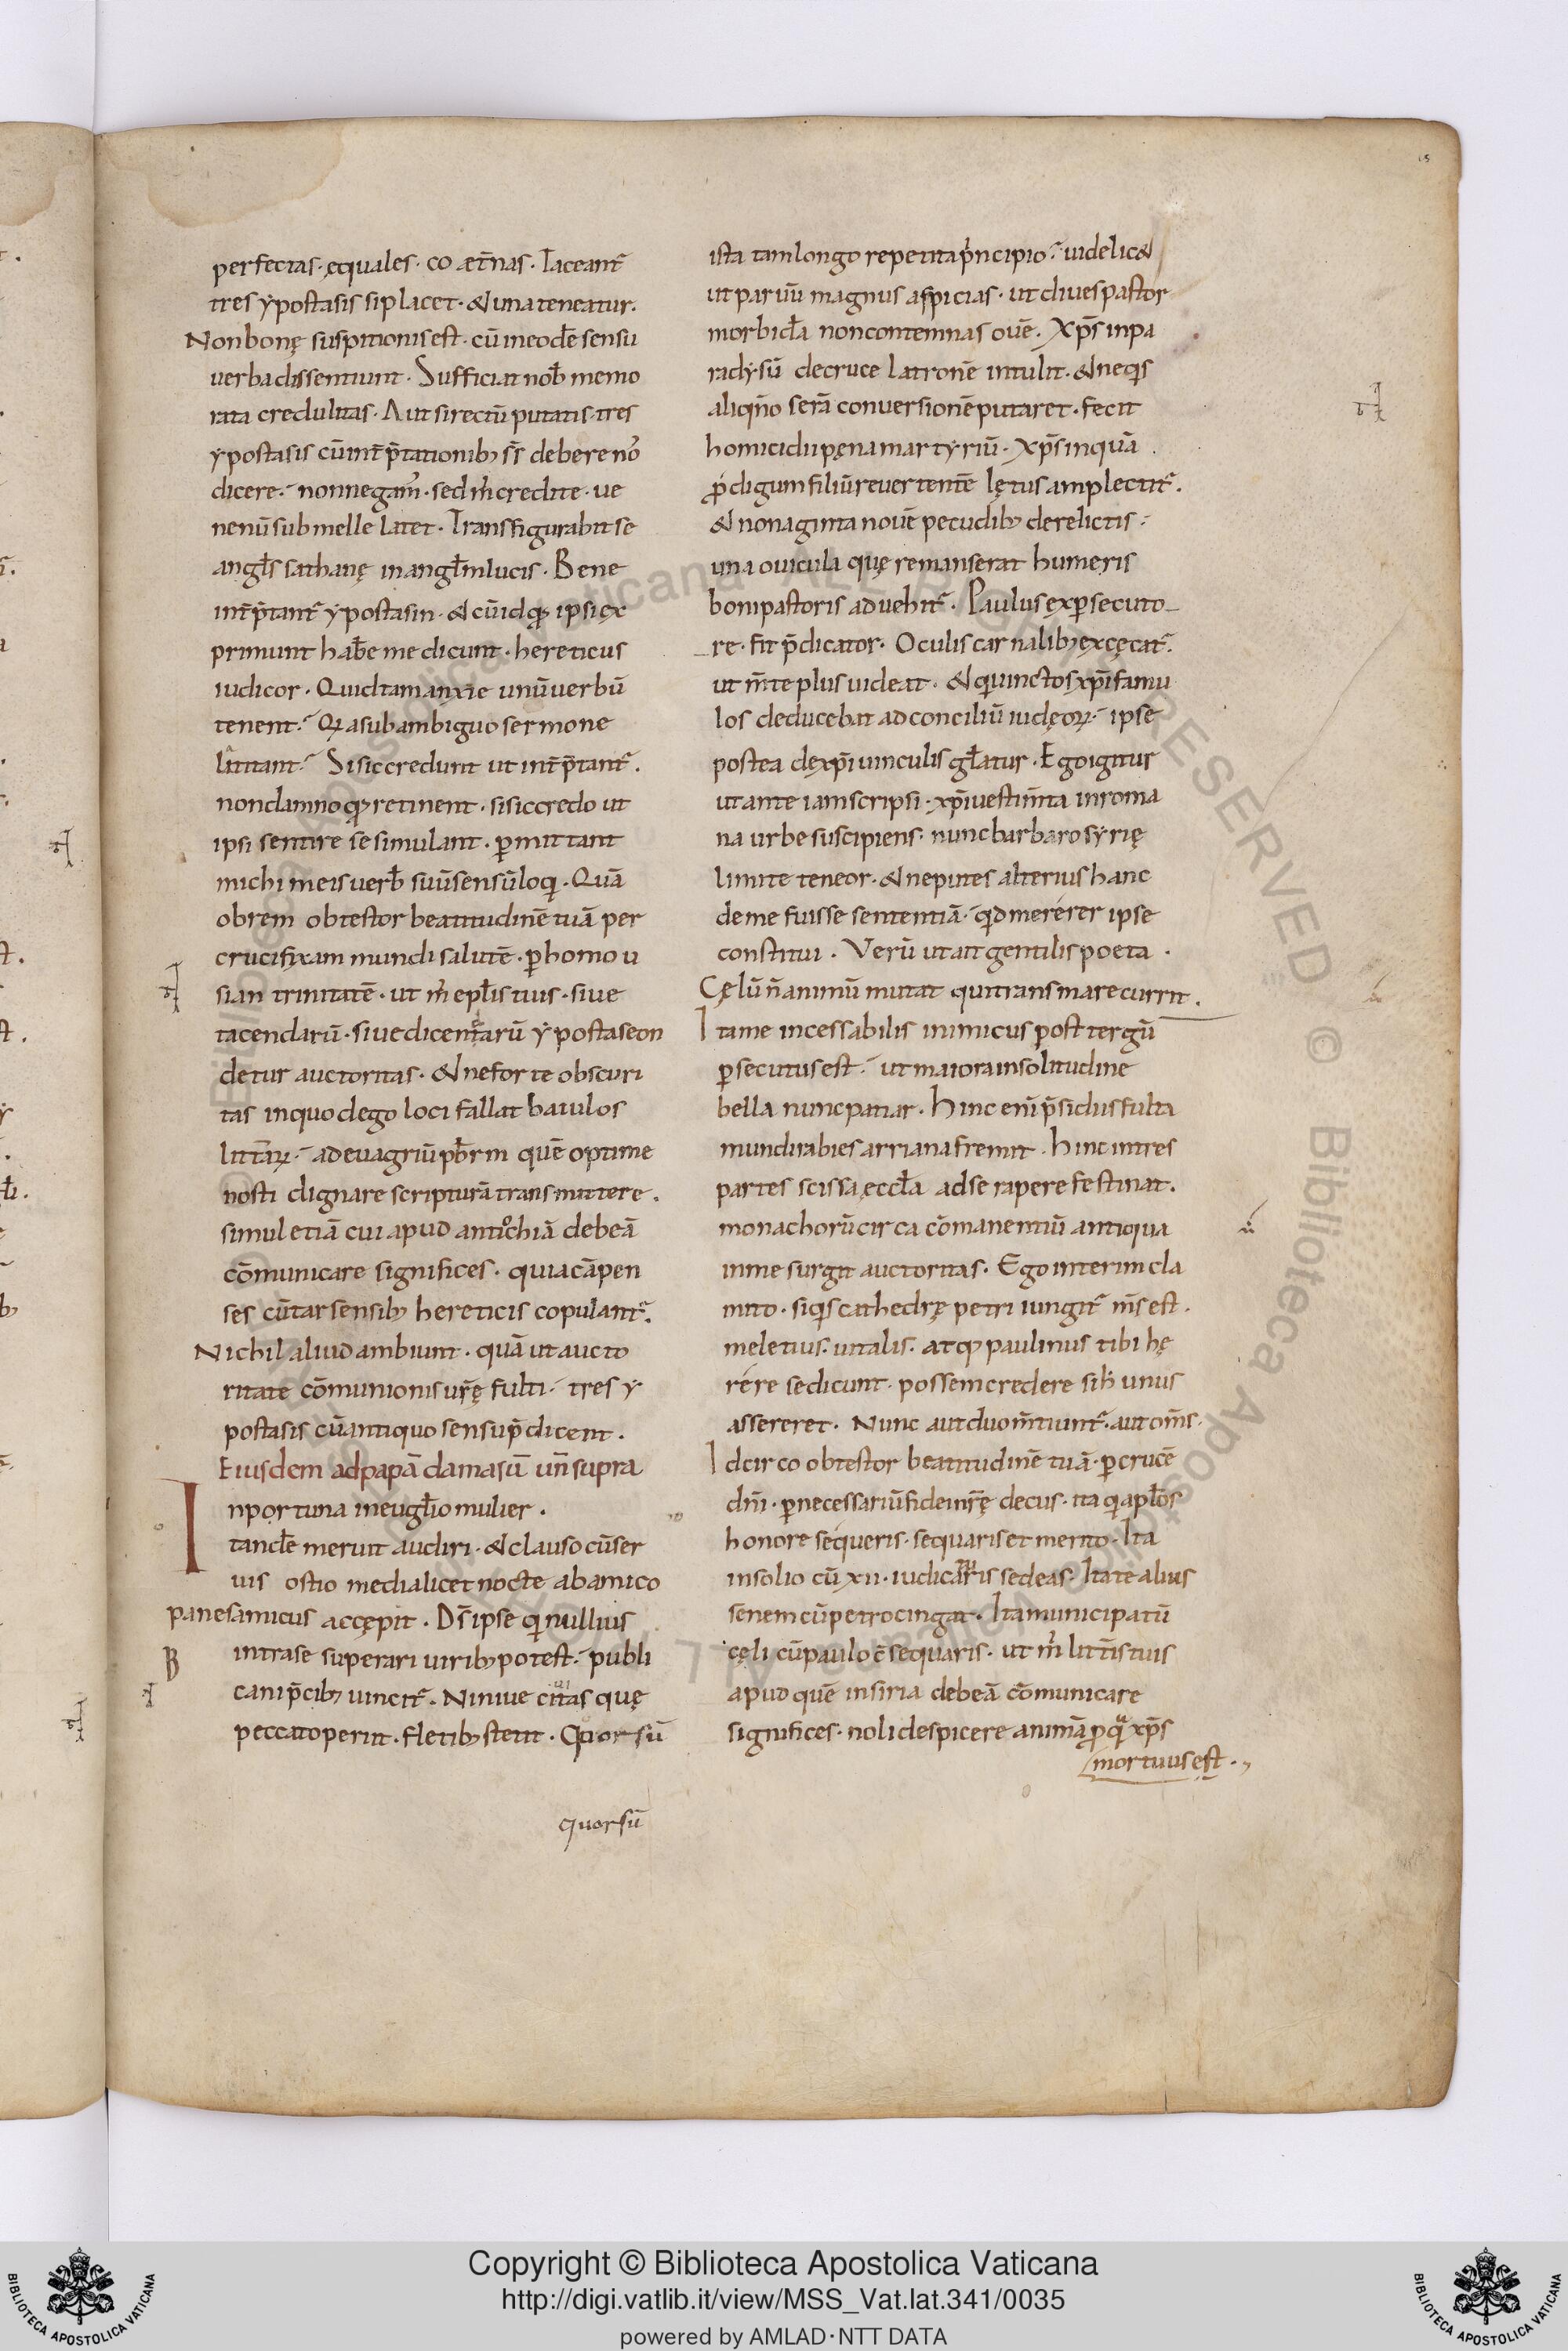 perfectas· ęquales· co æt̄nas· Taceant᷑
tres ypostasis si placet· & una teneatur.
Non bonę suspitionis est· cū in eodē sensu
uerba dissentiunt· Sufficiat nob̄ memo
rata credulitas· Aut si rectū putatis· tres
ypostasis cū int̄p̄tationib; s̄r debere no᷒
dicere· non negam᷒· sed m̄ credite· ue
nenū sub melle latet· Transfigurabit se
angl̄s sathanę in angl̄m lucis· Bene
int̄p̄tant᷑ ypostasin· & cū id q; ipsi ex
primunt hab̄e me dicunt· hereticus
iudicor· Quid tam anxie unū uerbū
tenent· Qꝛ a sub ambiguo sermone
latitant· Si sic credunt ut int̄p̄tant᷑.
non damno q; retinent· si sic credo ut
ipsi sentire se simulant· ꝑmittant
michi meis uerb̄ suū sensū loqi· Quā
obrem obtestor beatitudinē tuā per
crucifixam mundi salutē· ꝑ homo u
sian trinitatē· ut m̄ epl̄is tuis· siue
tacendarū· siue dicendarū ypostaseon
detur auctoritas· & ne forte obscuri
tas in quo dego loci fallat baiulos
litt̄aꝝ· ad euagriū pb̄rm quē optime
nosti dignare scripturā transmittere.
simul etiā cui apud antiochiā debeā
cōmunicare significes· quia cāpen
ses cū tarsensib; hereticis copulant᷑.
Nichil aliud ambiunt· quā ut aucto
ritate cōmunionis ur̄ę fulti· tres y
postasis cū antiquo sensu p̄dicent.
Eiusdem ad papā damasū un̄ supra
Inportuna in eugl̄io mulier.
tandē meruit audiri· & clauso cū ser
uis ostio media licet nocte ab amico
panes amicus accępit· D̄s ipse qi nullius
intra se superari uirib; potest· publi
cani p̄cib; uincit᷑. Niniue ciuitas quę
peccato periit· fletib; stetit· Quorsū
quorsū
ista tam longo repetita p̄ncipio· uidelic&
ut paruū magnus aspicias· ut diues pastor
morbidā non contemnas ouē· Xp̄s in pa
radysū de cruce latronē intulit· & neqis
aliqn̄o serā conuersionē putaret· fecit
homicidii pęna martyriū· Xp̄s inquā
ꝓdigum filiū reuertentē lętus amplectit᷑.
& nonaginta nouē pecudib; derelictis·
una ouicula quę remanserat humeris
boni pastoris aduehit᷑· Paulus ex ꝑsecuto
re· fit p̄dicator· Oculis carnalib; excęcat᷑.
ut m̄te plus uideat· & qi uinctos xp̄i famu
los deducebat ad conciliū iudęoꝝ· ipse
postea de xp̄i uinculis gl̄atur· Ego igitur
ut ante iam scripsi· xp̄i uestim̄ta in roma
na urbe suscipiens· nunc barbaro syrię
limite teneor· & ne putes alterius hanc
de me fuisse sententiā· qd mererer ipse
constitui· Verū ut ait gentilis poeta·
Cęlū n̄ animū mutat qui trans mare currit.
Ita me incessabilis inimicus post tergū
ꝑsecutus est· ut maiora in solitudine
bella nunc patiar· Hinc eni p̄sidiis fulta
mundi rabies arriana fremit· Hinc in tres
partes scissa ęccl̄a ad se rapere festinat.
monachorū circa cōmanentiū antiqua
in me surgit auctoritas· Ego interim cla
mito· siqis cathedrę petri iungit᷑ m̄s est.
meletius· uitalis· atq; paulinus tibi hę
rere se dicunt· possem credere si h᷒ unus
assereret· Nunc aut duo m̄tiunt᷑· aut om̄s.
Idcirco obtestor beatitudinē tuā· ꝑ crucē
dn̄i· ꝑ necessariū fidei nr̄ę decus· ita qi apl̄os
honore sequeris· sequaris et merito· Ita
in solio cū xii· iudicaturis sedeas· Ita te alius
senem cū petro cingat· Ita municipatū
cęli cū paulo c̄sequaris· ut m̄ litt̄is tuis
apud quē in siria debeā cōmunicare
significes· noli despicere animā ꝓ qͣ xp̄s
mortuus est·,
15
Copyright © Biblioteca Apostolica Vaticana
http://digi.vatlib.it/view/MSS_Vat.lat.341/0035
powered by AMLAD·NTT DATA
BIBLIOTECA APOSTOLICA VATICANA
BIBLIOTECA APOSTOLICA VATICANA